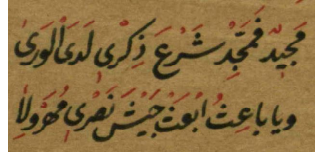 مَجِيدٌ فَمَجِّدْ شَرْعَ ذِكْرِي لَدَى الْوَرَى
وَيَا بَاعِثُ ابْعَثْ جَيْشَ نَصْرِي مُهَرْوِلَا